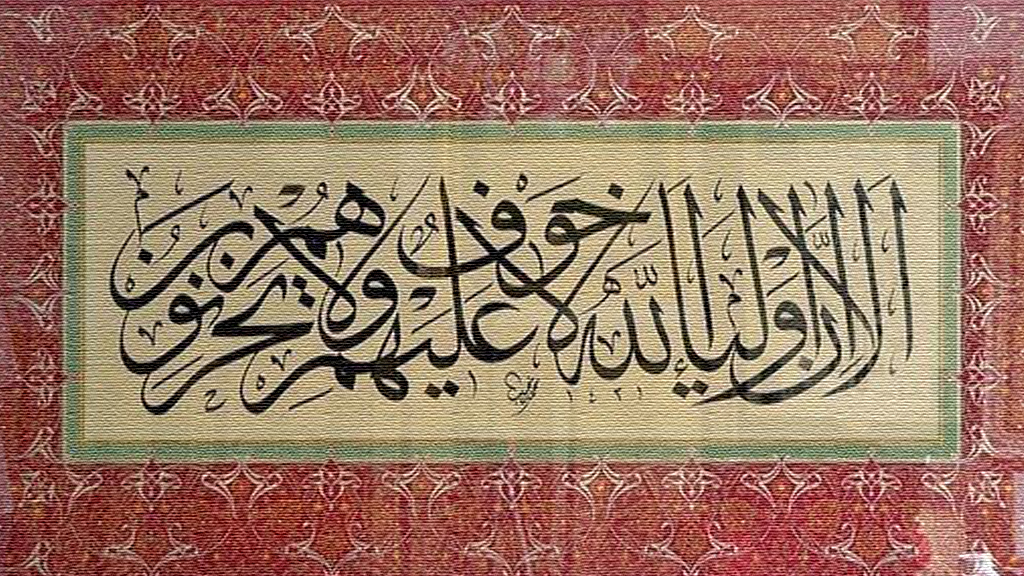 الا ان اولياء الله لا خوف عليهم ولا هم يحزنون
١٤٢١